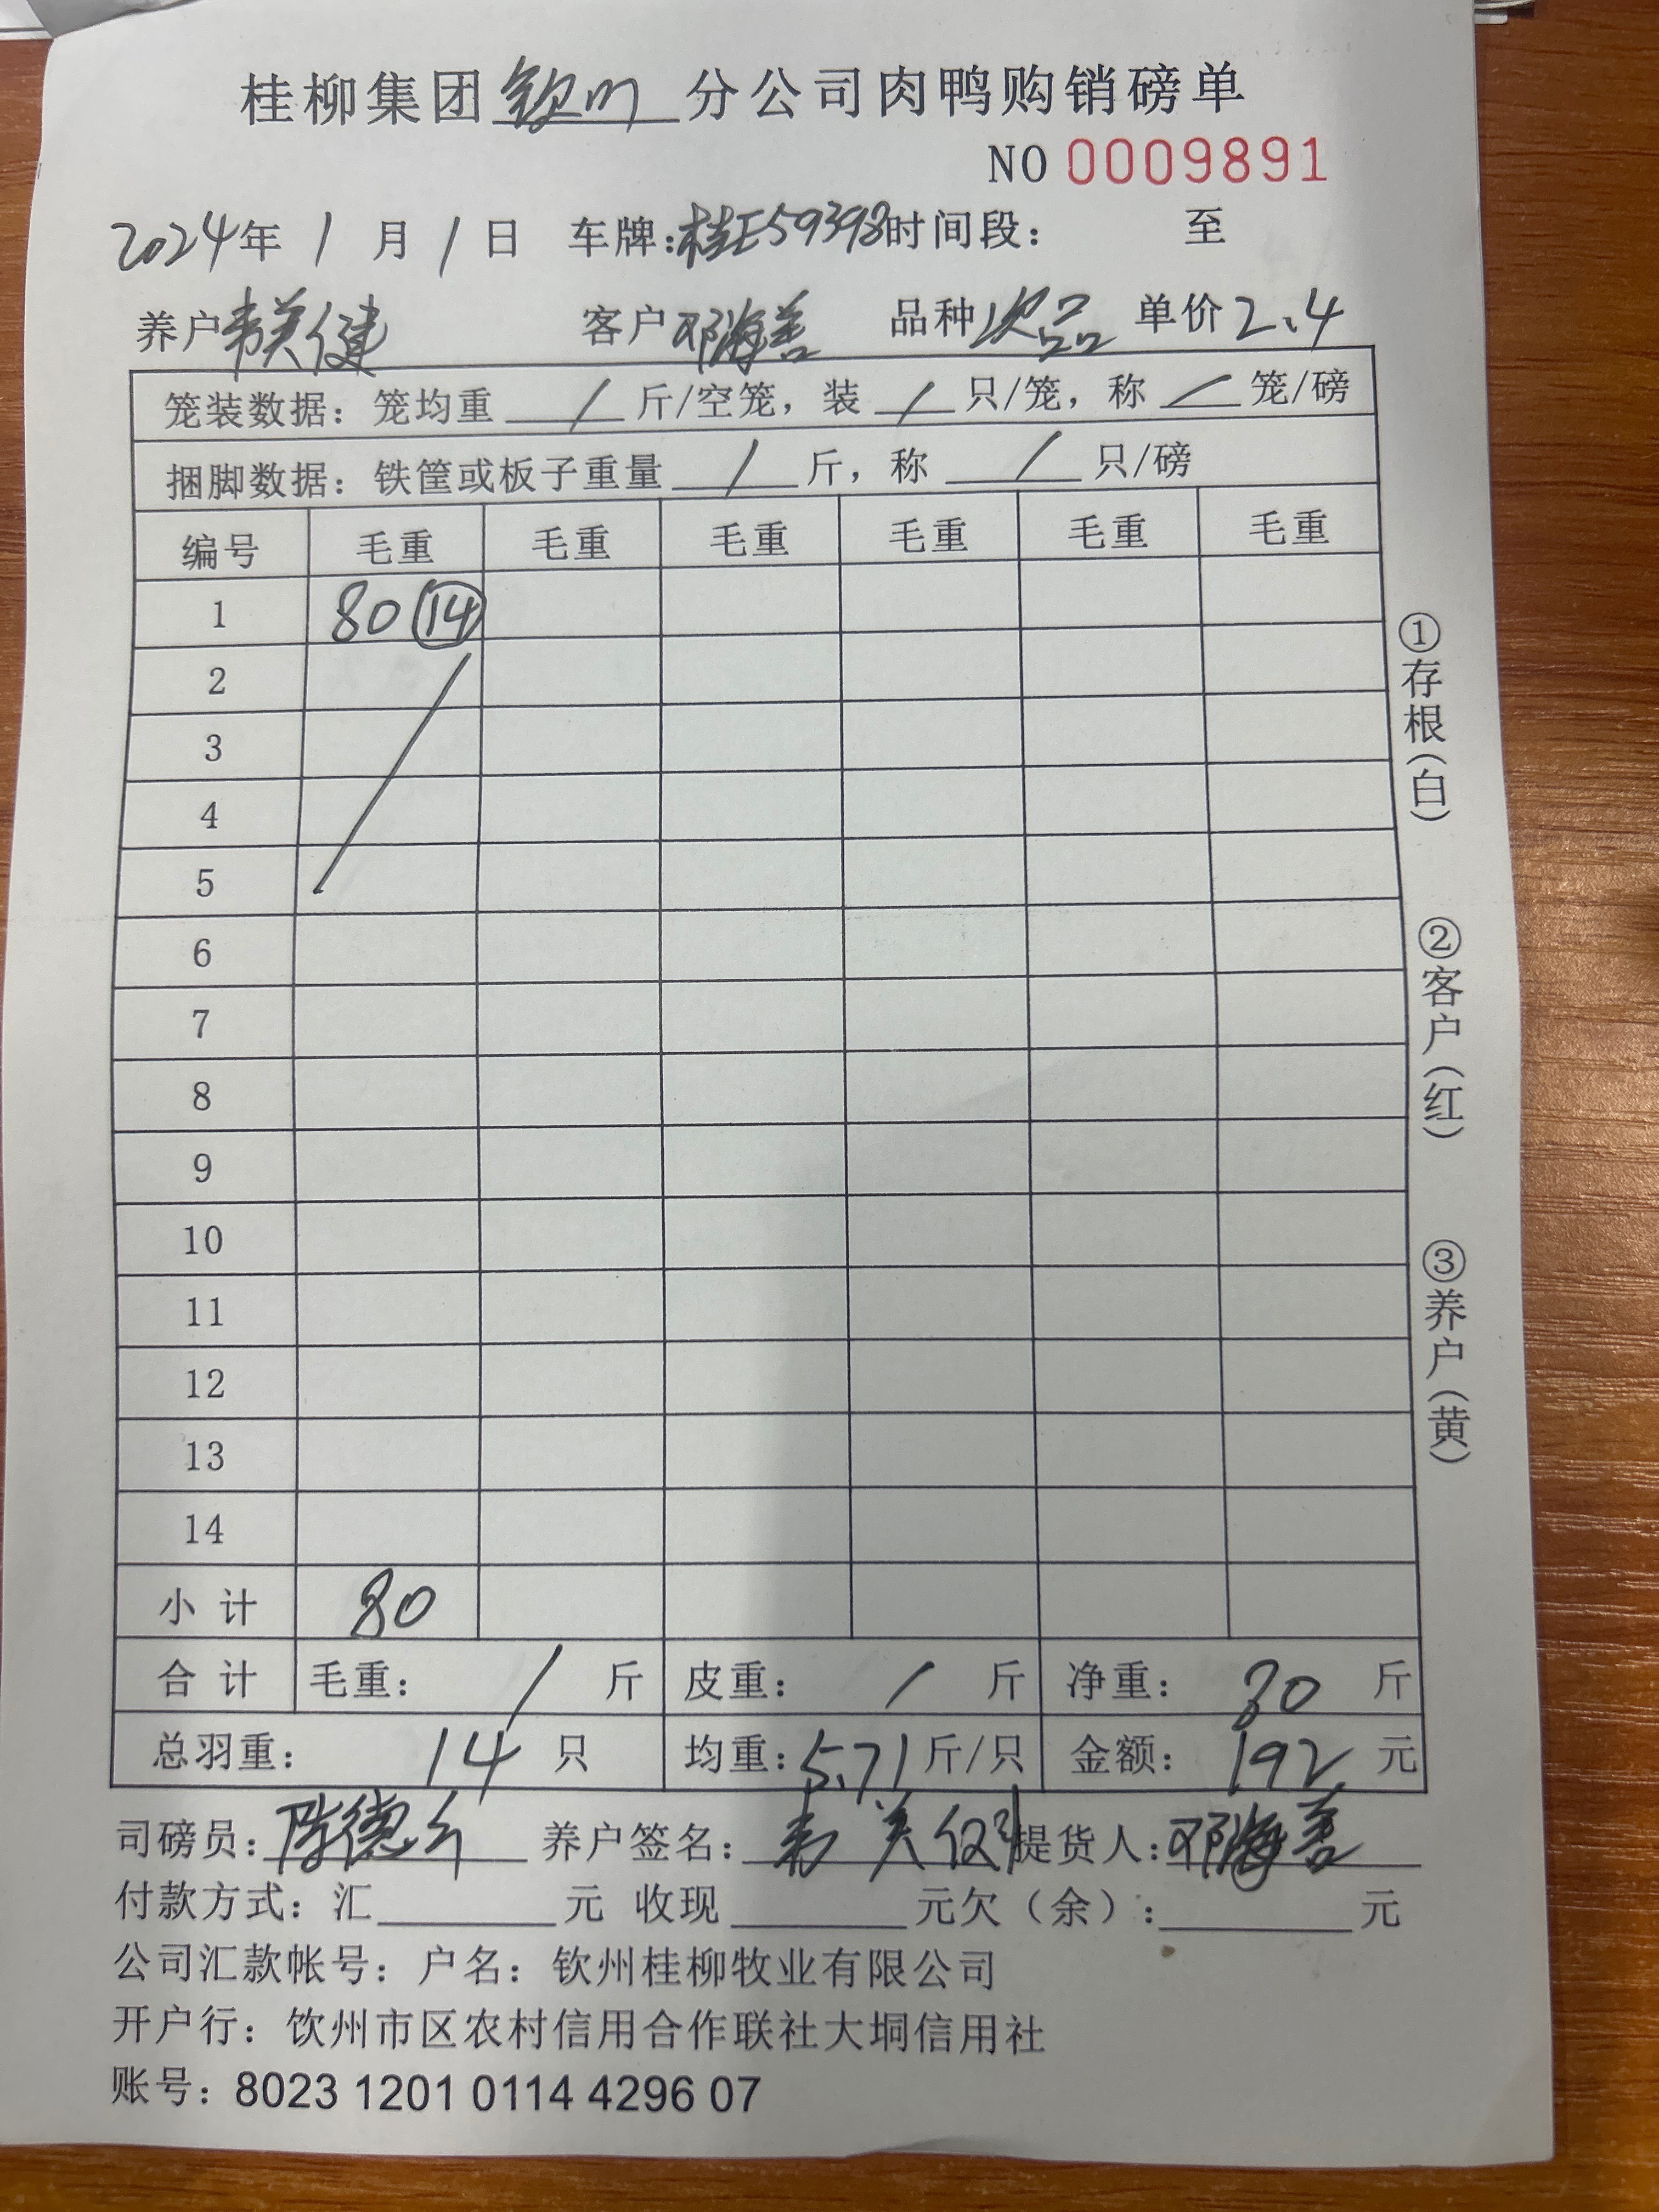 桂柳集团钦州分公司肉鸭购销磅单
NO 0009891
2024年 1 月 1 日 车牌:桂E59398 时间段: 至
养户 韦美健 客户 邓海善 品种 次品 单价 2.4
笼装数据: 笼均重 / 斤/空笼, 装 / 只/笼, 称 / 笼/磅
捆脚数据: 铁筐或板子重量 / 斤, 称 / 只/磅
编号 毛重 毛重 毛重 毛重 毛重 毛重
1 80 14
2
3
4
5
6
7
8
9
10
11
12
13
14
小计 80
合计 毛重: / 斤 皮重: / 斤 净重: 80 斤
总羽重: 14 只 均重: 5.71 斤/只 金额: 192 元
司磅员: 陈德 养户签名: 韦美健 提货人: 邓海善
付款方式: 汇 元 收现 元欠(余): 元
公司汇款帐号: 户名: 钦州桂柳牧业有限公司
开户行: 饮州市区农村信用合作联社大垌信用社
账号: 8023 1201 0114 4296 07
①存根(白)
②客户(红)
③养户(黄)